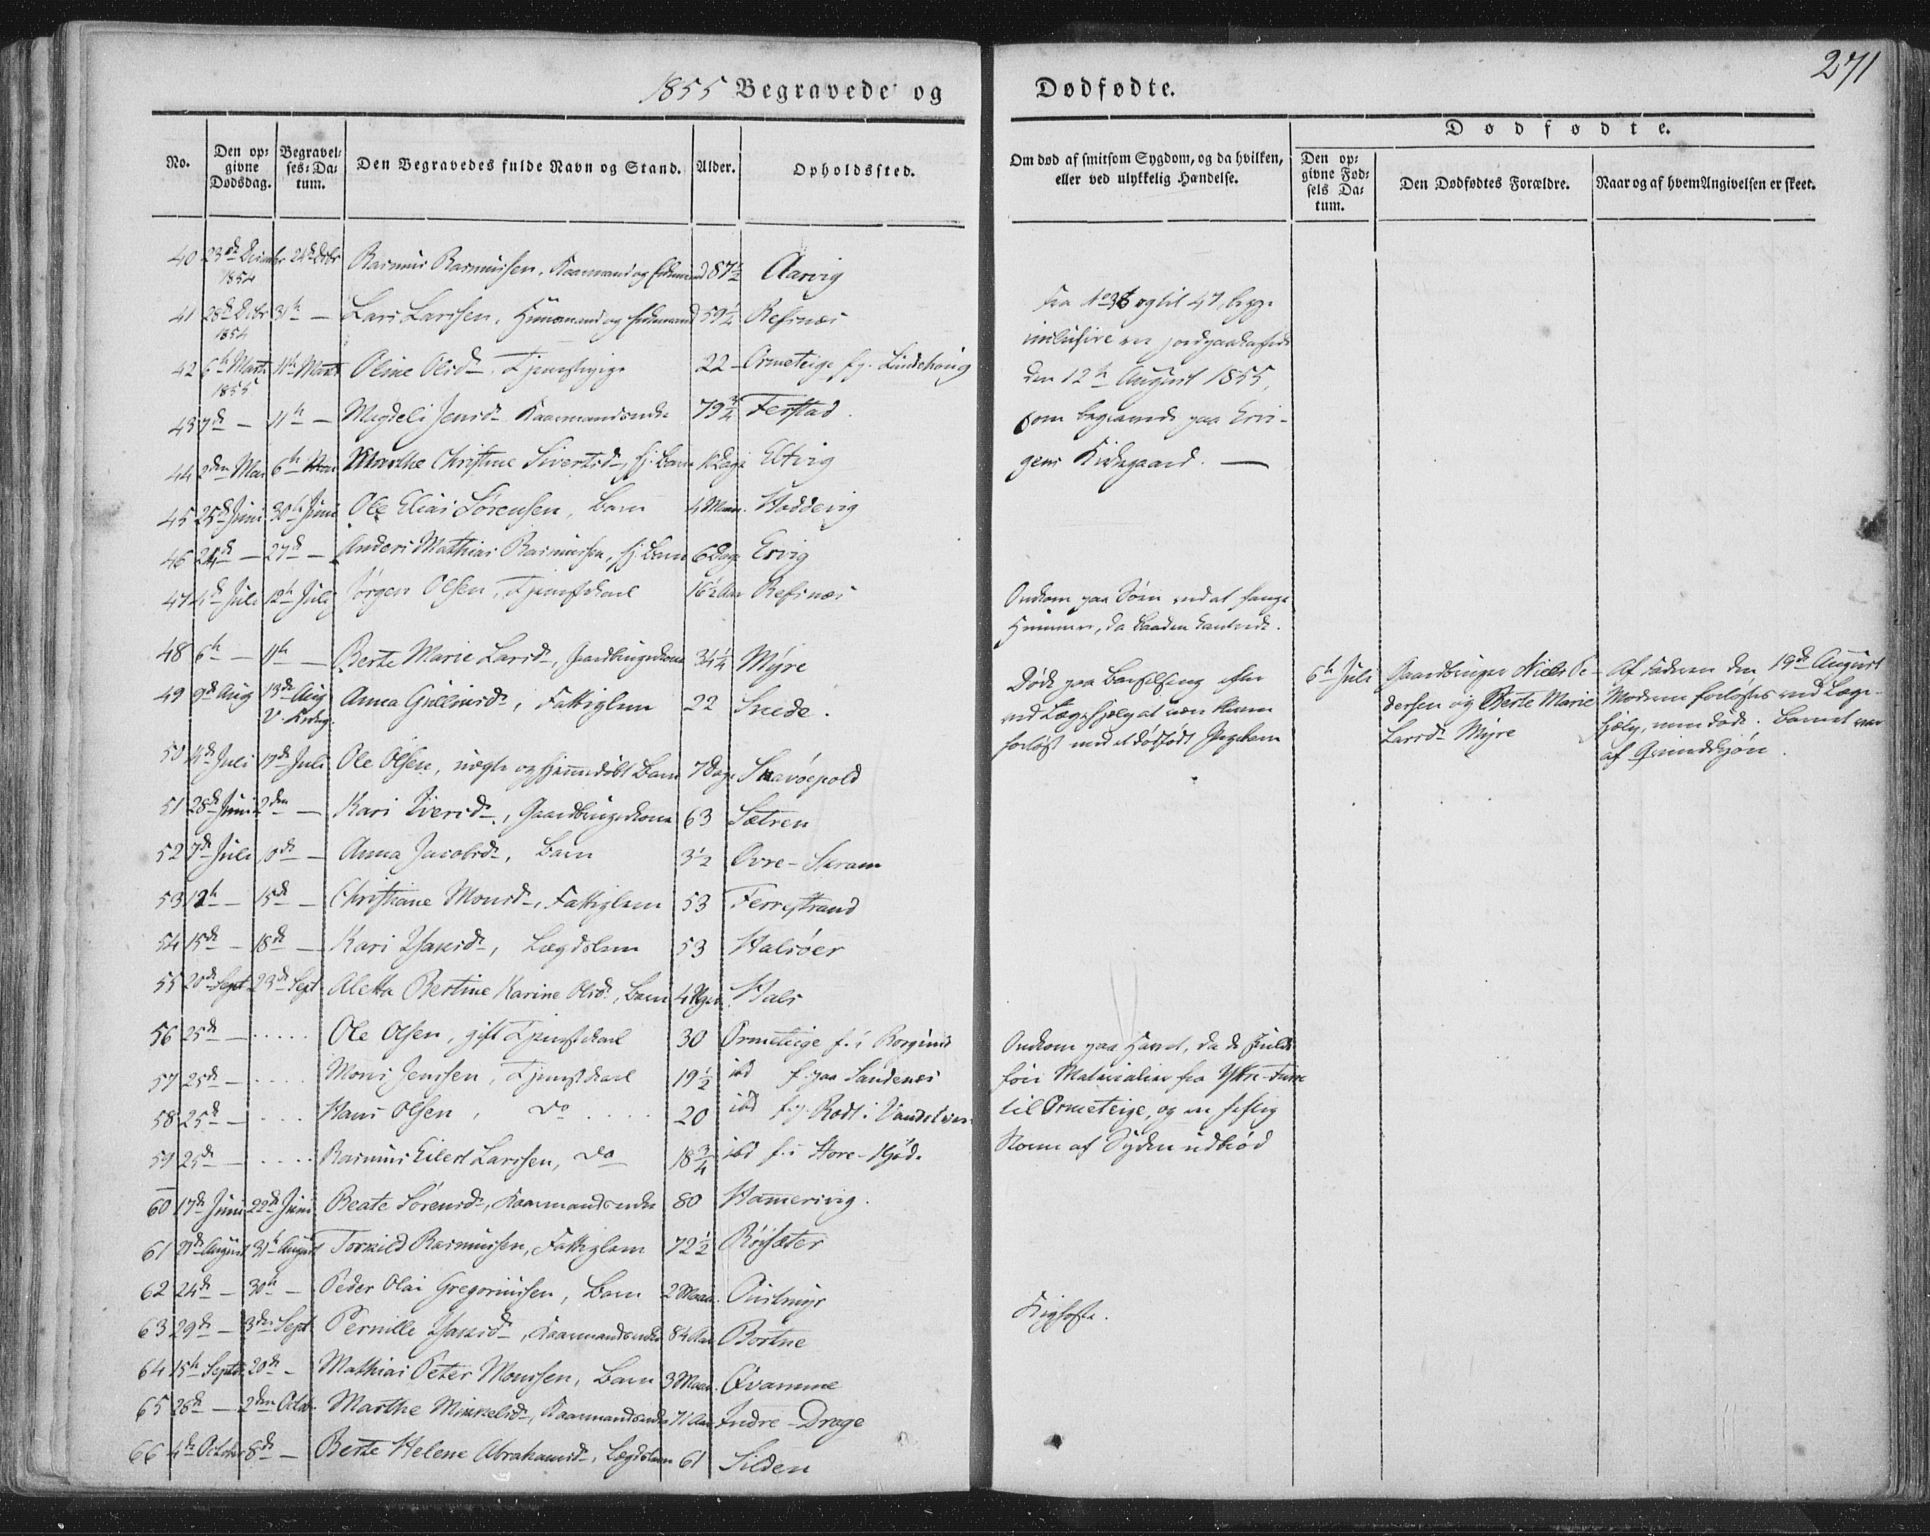 271
1855 Begravede og Dødfødte.
No.
Den opgivne Dødsdag.
Begravelses-Datum.
Den Begravedes fulde Navn og Stand.
Alder.
Opholdssted.
Om død af smitsom Sygdom, og da hvilken, eller ved ulykkelig Hændelse.
Dødfødte.
Den opgivne Fødsels Datum.
Den Dødfødtes Forældre.
Naar og af hvem Angivelsen er skeet.
40 23de Decimbr 1854 28de Dcbr Rasmus Rasmussen, Kaarmand og 87½ Aarvig
41 28de Dcbr 1854 31te — Lars Larssen, Huusmand og 59¼ Refsnæs
42 6te Marts 1855 11te Marts Oline Olsd., Tjenestepige 22 Ormeteige f. p. Lindehoug
43 7de — 11te — Magdeli Jensd. Kaarmandsenke 79¾ Ferstad.
44 2den Mai 6te Mai Marthe Christine Sivertsd., hj. Barn Dage Eltvig
45 25de Juni 30te Juni Ole Elias Sørensen, Barn 4 Maan. Hoddevig
46 24de — 27de — Anders Mathias Rasmussen, hj. Barn 6 Dage Ervig
47 4de Juli 12te Juli Jørgen Olsen, Tjenestekarl 16½ Aar Refsnæs
48 6te — 11te — Berte Marie Larsd., Gaardbrugerkone 34¼ Myre
49 9de Aug 13de Aug v. Kirkeg. Anna Gulliksd., Fattiglem 22 Snede.
50 14de Juli 19de Juli Ole Olsen, uægte og hjemmedøbt Barn 7 Dage Skavøepold
51 28de Juni 2den — Kari Iversd., Gaardbrugerkone 63 Sætren
52 7de Juli 10de — Anna Jacobsd., Barn 3½ Øvre-Skram
53 12te — 15de — Christiane Monsd., Fattiglem 53 Ferrestrand
54 15de — 18de — Kari Isaksd., Lægdslem 53 Halsøer
55 20de Sept 23de Sept Aletta Bertine Karine Olsd., Barn 4 Uger Hals
56 25de — . . . . . Ole Olsen, gift Tjenestekarl 30 Ormeteige f. i Borgund
57 25de — . . . . Mons Jenssen, Tjenestekarl 19½ ibd f. paa Sandenes
58 25de — . . . . Hans Olsen, do . . . . 20 ibd f. p. Rødt i Vandelven
59 25de — . . . . Rasmus Eilert Larssen, do 18¾ ibd f. i Hore-Kjød.
60 17de Juni 22de Juni Beate Sørensd., Kaarmandsenke 80 Hamerivig.
61 27de August 31te August Torkild Rasmussen, Fattiglem 72½ Røisæter
62 24de — 30te — Peder Olai Gregoriussen, Barn 2 Maan. Qvilmyr
63 29de — 3die Sept Pernille Isaksd., Kaarmandsenke 84 Aar Bortne
64 15te Septr 20de — Mathias Peter Monssen, Barn 3 Maan. Qvamme
65 28de — 2den Octbr. Marthe Mikkelsd., Kaarmandsenke 71 Aar Indre-Drage
66 4de October 8de — Berte Helene Abrahamsd., Lægdslem 61 Silden
Fra No 36 og til 47, begge
inclusive ere jordpaakastede
den 12te August 1855,
som begravede paa Ervi-
gens Kirkegaard. —
Omkom paa Søen ved at fange
Hummer, da Baaden kantrede.
Døde paa Barselseng efter
ved Lægehjelp at være bleven
forløst med et dødfødt Pigebarn
6te Juli
Gaardbruger Niels Pe-
dersen og Berte Marie
Larsd. Myre
Af Faderen den 19de August
Moderen forløstes ved Læge-
hjelp, men døde. Barnet var
af Qvindekjøn.
Omkom paa Havet, da de skulde
føre Materialier fra Ytre-
til Ormeteige, og en heftig
Storm af Syden udbrød
Kighoste.